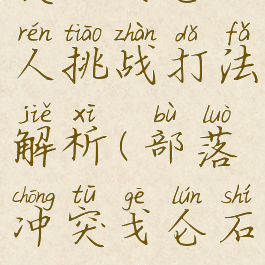 rén tiāo zhàn dǎ fǎ
人挑战打法
jiě xī bù luò
解析(部落
chōng tū gē lún shí
冲突戈仑石